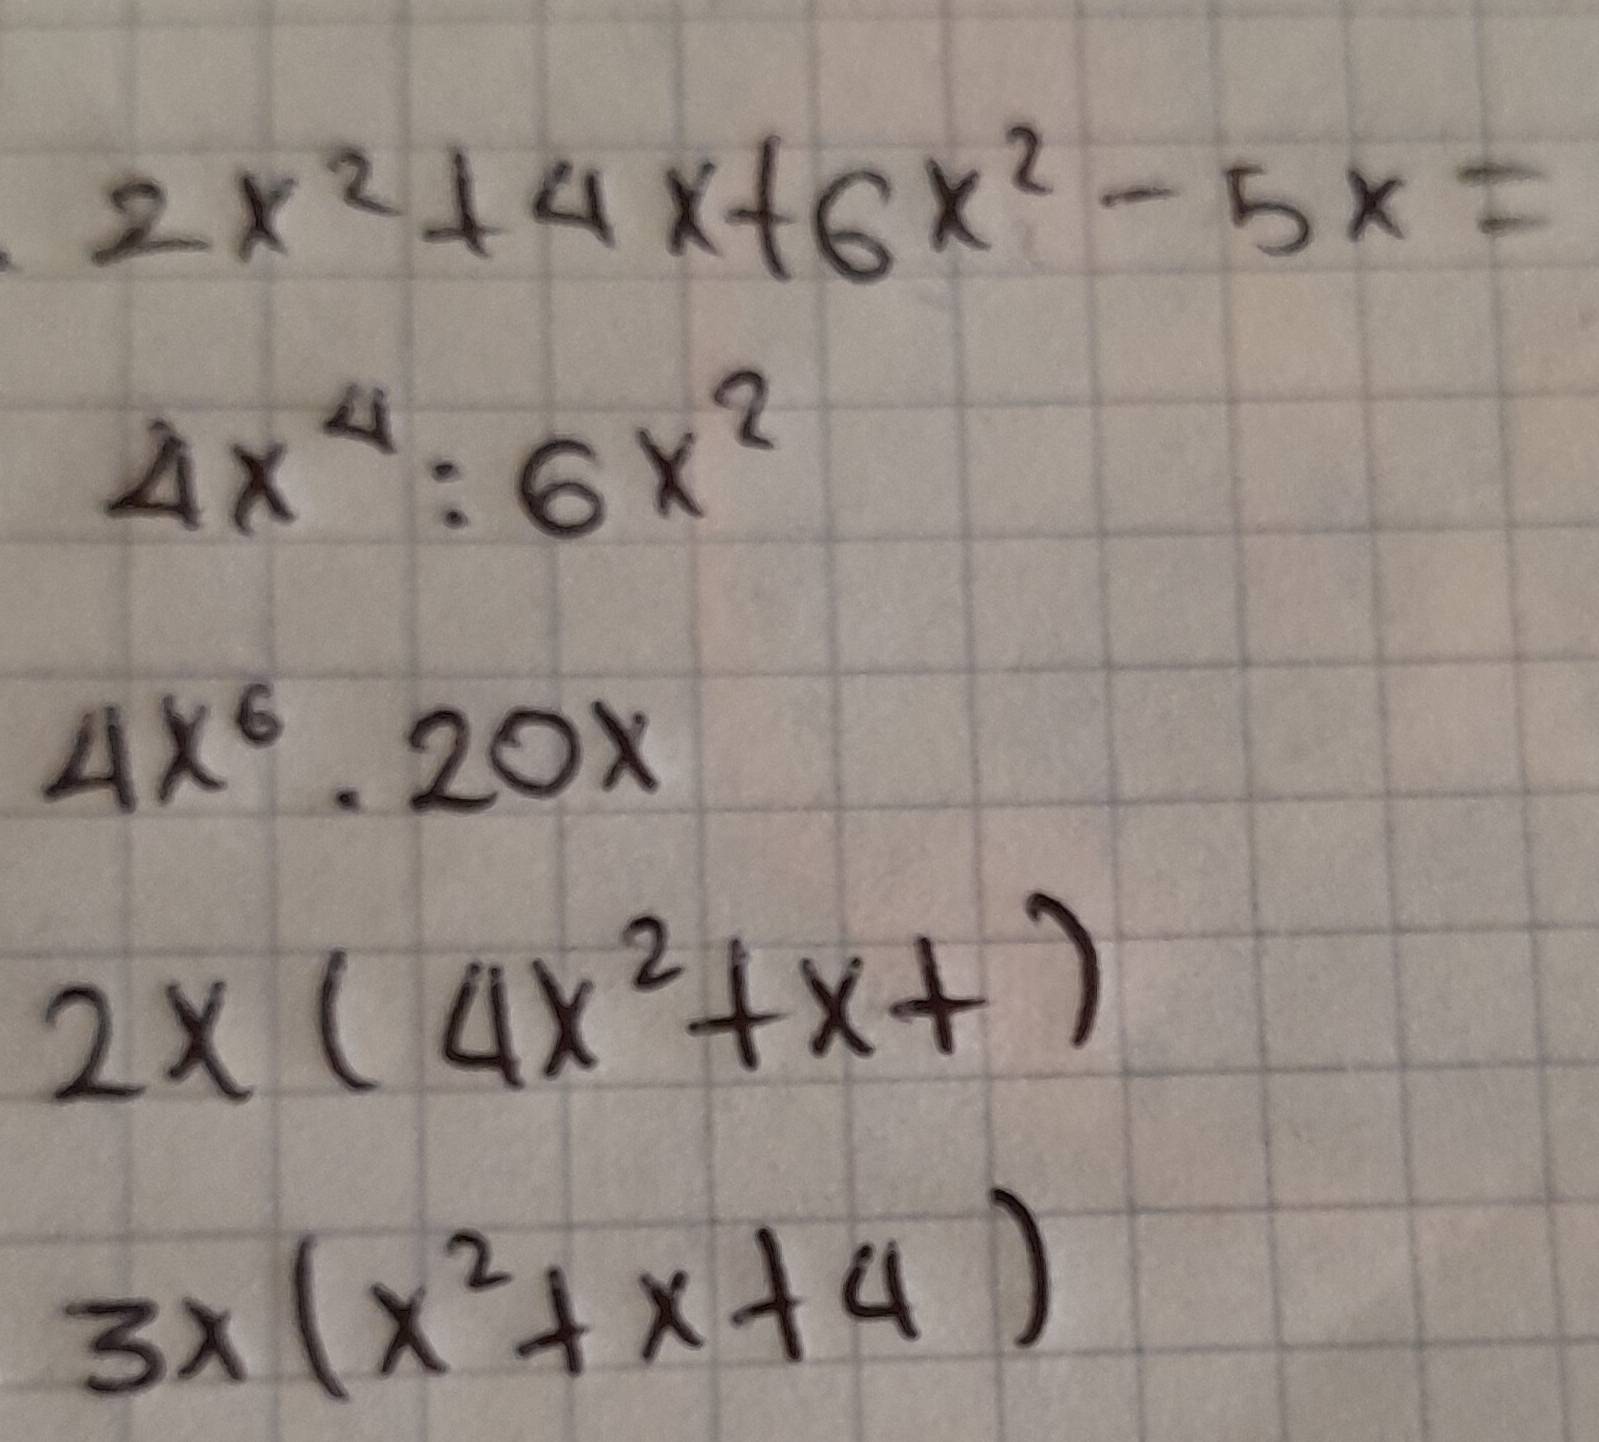 2x² + 4x + 6x² - 5x =
4x⁴ : 6x²
4x⁶ . 20x
2x ( 4x² + x + )
3x ( x² + x + 4 )